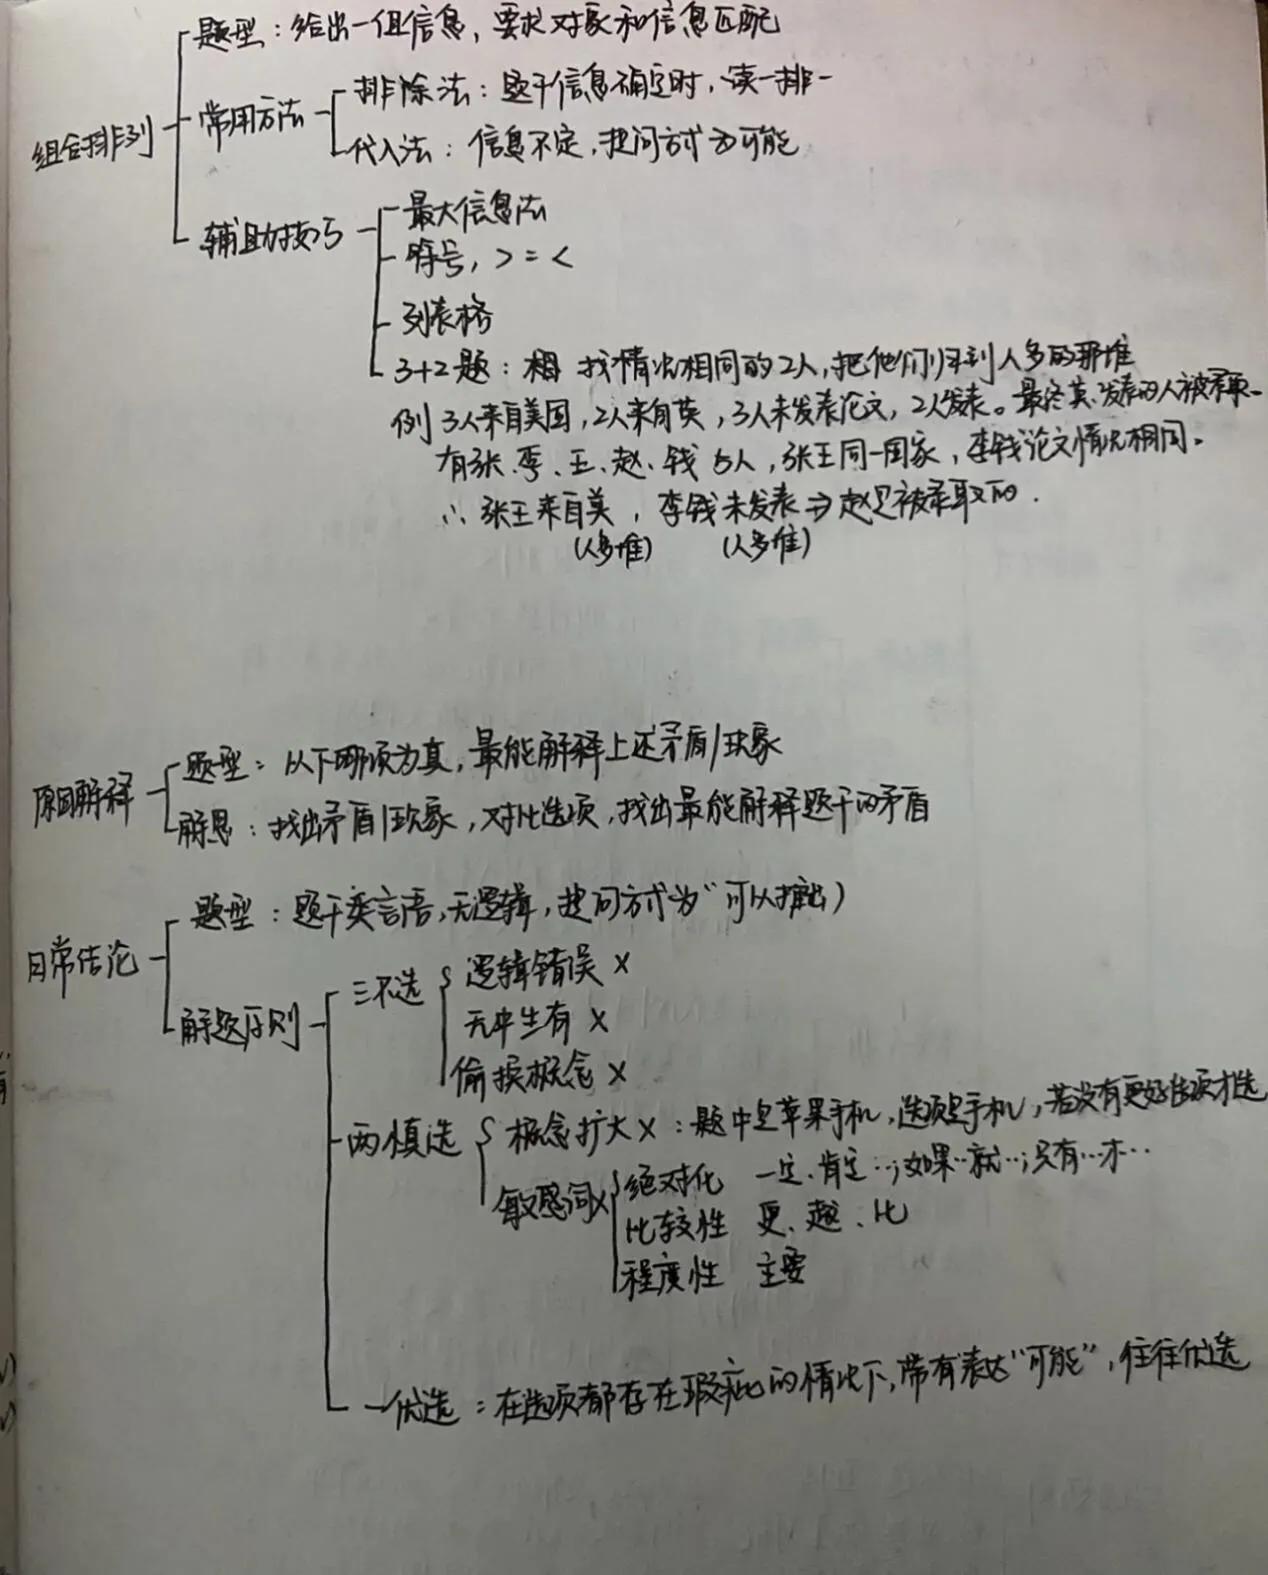 组合排列
题型：给出一组信息，要求对象和信息匹配
常用方法
排除法：题干信息确定时，读一排一
代入法：信息不定，提问方式为可能
辅助技巧
最大信息法
符号，> = <
列表格
3+2题：相 找情况相同的2人，把他们归到人多的那堆
例 3人来自美国，2人来自英，3人未发表论文，2人发表。最终英、发表的人被录取
有张、李、王、赵、钱 5人，张王同一国家，李钱论文情况相同。
∴ 张王来自美，李钱未发表 ⇒ 赵是被录取的.
(人多堆) (人多堆)
原因解释
题型：以下哪项为真，最能解释上述矛盾/现象
解思：找出矛盾/现象，对比选项，找出最能解释题干的矛盾
日常结论
题型：题干类言语，无逻辑，提问方式为“可以推出)
解题原则
三不选
逻辑错误 ×
无中生有 ×
偷换概念 ×
两慎选
概念扩大 ×：题中是苹果手机，选项是手机，若没有更好选项才选
敏感词×
绝对化 一定、肯定…；如果…就…；只有…才…
比较性 更、越、比
程度性 主要
一优选：在选项都存在瑕疵的情况下，带有表达“可能”，往往优选